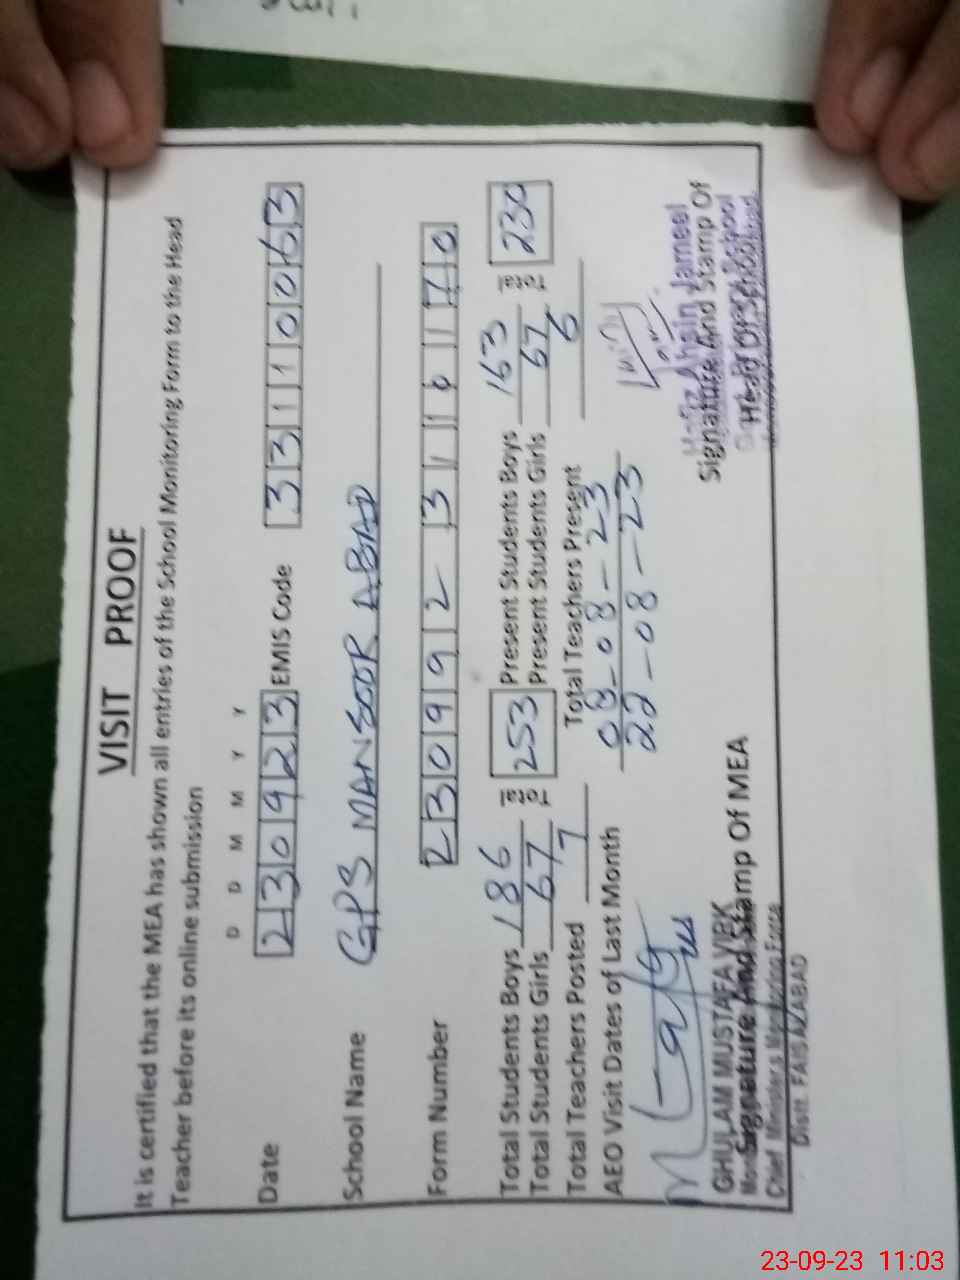 VISIT PROOF
It is certified that the MEA has shown all entries of the School Monitoring Form to the Head
Teacher before its online submission
D D M M Y Y
Date 230923 EMIS Code 33110063
School Name GPS MANSOOR ABAD
Form Number 230992-3110170
Total Students Boys 186 Total 253 Present Students Boys 163 Total 230
Total Students Girls 67 Present Students Girls 67
Total Teachers Posted 7 Total Teachers Present 6
AEO Visit Dates of Last Month 08-08-23
22-08-23
GHULAM MUSTAFA VIRK
Signature And Stamp Of MEA
Chief Minister's Monitoring Force
Distt. FAISALABAD
Jameel
Signature And Stamp Of
Head Of School
23-09-23 11:03